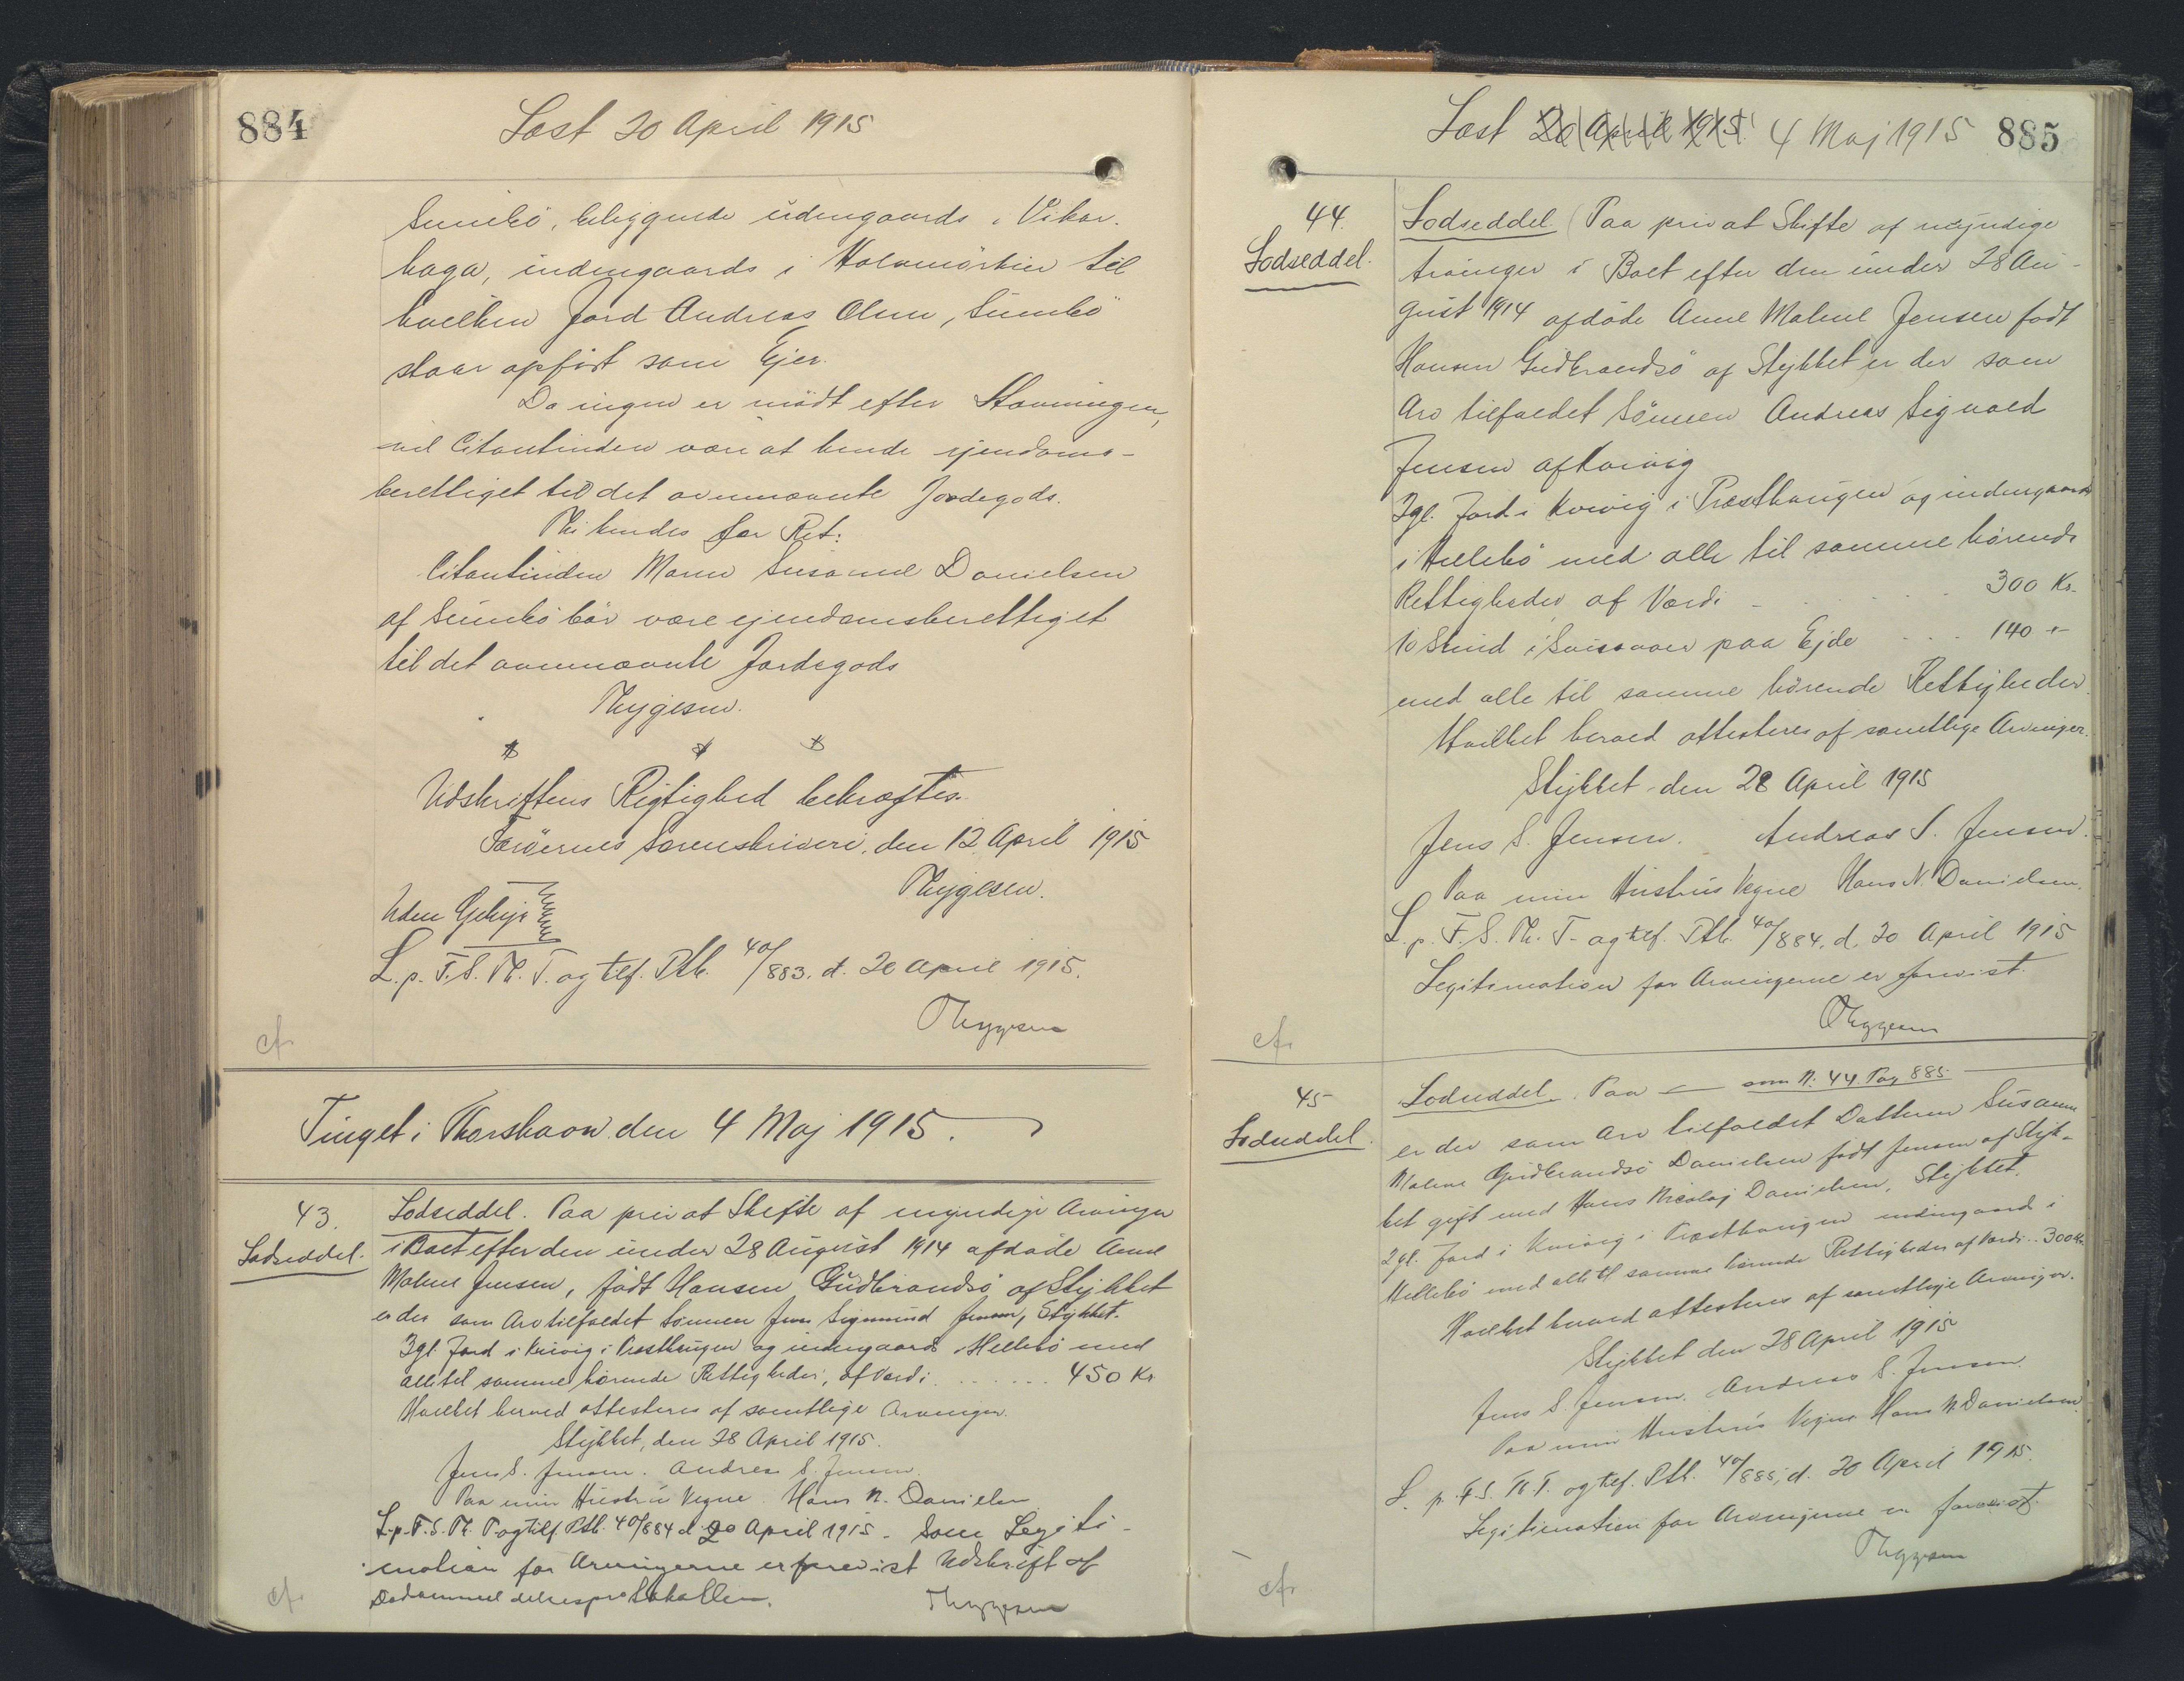 884
Læst 20 April 1915
Sumbö, beliggende udengaards i Vikar-
haga, indengaards i Halamörkin til
hvilken Jord Andreas Olsen, Sumbö
staar opfört som Ejer.
Da ingen er mödt efter Stævningen,
vil Citantinden være at kende ejendoms-
berettiget til det ovennævnte Jordegods.
Thi kendes for Ret:
Citantinden Maren Susanne Danielsen
af Sumbö bör være ejendomsberettiget
til det ovennævnte Jordegods
Thygesen.
Udskriftens Rigtighed bekræftes.
Færöernes Sorenskriveri, den 12 April 1915
Thygesen.
Uden Gebyr
L. p. F. S. Th. T. og tilf. Ptk. 40/883. d. 20 April 1915.
Thygesen
cf.
Tinget i Thorshavn den 4 Maj 1915.
43.
Lodseddel.
Lodseddel. Paa privat Skifte af myndige Arvinger
i Boet efter den under 28 August 1914 afdöde Anne
Malene Jensen, födt Hansen Gudbrandsö af Stykket
er der som Arv tilfaldet Sönnen Jens Sigmund Jensen, Stykket.
3 gl. Jord i Kvivig i Præsthaugen og indengaards i Hellebö med
alle til samme hörende Rettigheder, af Værdi . . . . . . 450 Kr
Hvilket herved attesteres af samtlige Arvinger.
Stykket, den 28 April 1915.
Jens S. Jensen. Andreas S. Jensen.
Paa min Hustrus Vegne Hans N. Danielsen
L. p. F. S. Th. T. og tilf. Ptk. 40/884 d. 20 April 1915. Som Legiti-
mation for Arvingerne er forevist Udskrift af
Dödsanmeldelsesprotokollen.
Thygesen
cf.
Læst 20 April 1915. 4 Maj 1915
885
44.
Lodseddel.
Lodseddel. Paa privat Skifte af myndige
Arvinger i Boet efter den under 28 Au-
gust 1914 afdöde Anne Malene Jensen födt
Hansen Gudbrandsö af Stykket er der som
Arv tilfaldet Sönnen Andreas Sigvald
Jensen af Kvivig
2 gl. Jord i Kvivig i Præsthaugen og indengaards
i Hellebö med alle til samme hörende
Rettigheder af Værdi . . . . . . 300 Kr.
10 Skind i paa Ejde . . . 140 -
med alle til samme hörende Rettigheder.
Hvilket herved attesteres af samtlige Arvinger.
Stykket den 28 April 1915
Jens S. Jensen. Andreas S. Jensen.
Paa min Hustrus Vegne Hans N. Danielsen.
L. p. F. S. Th. T. og tilf. Ptk. 40/884. d. 20 April 1915
Legitimation for Arvingerne er forevist.
Thygesen
cf.
45
Lodseddel.
Lodseddel. Paa — som N. 44 Pag 885
er der som Arv tilfaldet Datteren Susanne
Malene Gudbrandsö Danielsen födt Jensen af Styk-
ket gift med Hans Nicolaj Danielsen, Stykket.
2 gl. Jord i Kvivig i Præsthaugen indengaards i
Hellebö med alle til samme hörende Rettigheder af Værdi . . 300 Kr.
Hvilket herved attesteres af samtlige Arvinger.
Stykket den 28 April 1915
Jens S. Jensen. Andreas S. Jensen.
Paa min Hustrus Vegne Hans N. Danielsen.
L. p. F. S. Th. T. og tilf. Ptk. 40/885, d. 20 April 1915.
Legitimation for Arvingerne er forevist.
Thygesen
cf.